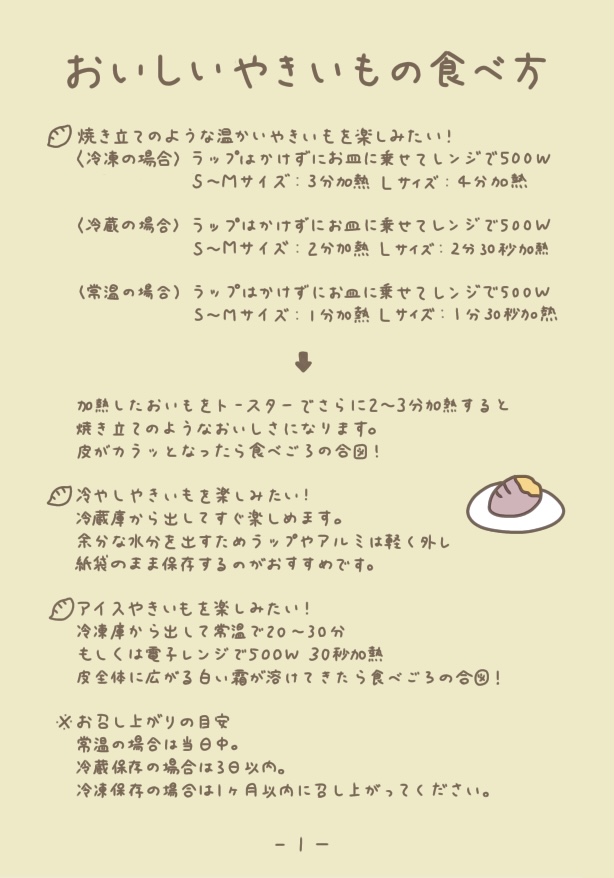 おいしいやきいもの食べ方
焼き立てのような温かいやきいもを楽しみたい！
〈冷凍の場合〉ラップはかけずにお皿に乗せてレンジで500W
S〜Mサイズ：3分加熱 Lサイズ：4分加熱
〈冷蔵の場合〉ラップはかけずにお皿に乗せてレンジで500W
S〜Mサイズ：2分加熱 Lサイズ：2分30秒加熱
〈常温の場合〉ラップはかけずにお皿に乗せてレンジで500W
S〜Mサイズ：1分加熱 Lサイズ：1分30秒加熱
加熱したおいもをトースターでさらに2〜3分加熱すると
焼き立てのようなおいしさになります。
皮がカラッとなったら食べごろの合図！
冷やしやきいもを楽しみたい！
冷蔵庫から出してすぐ楽しめます。
余分な水分を出すためラップやアルミは軽く外し
紙袋のまま保存するのがおすすめです。
アイスやきいもを楽しみたい！
冷凍庫から出して常温で20〜30分
もしくは電子レンジで500W 30秒加熱
皮全体に広がる白い霜が溶けてきたら食べごろの合図！
※お召し上がりの目安
常温の場合は当日中。
冷蔵保存の場合は3日以内。
冷凍保存の場合は1ヶ月以内に召し上がってください。
− 1 −